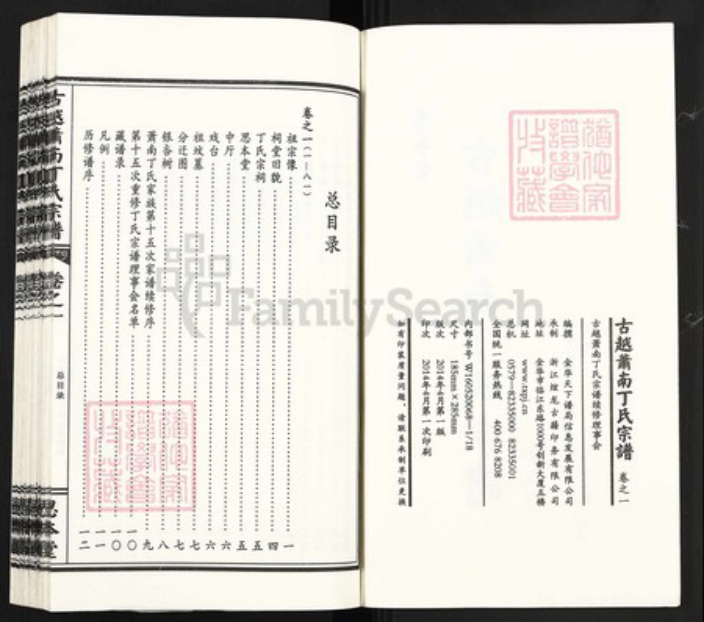 古越萧南丁氏宗谱 卷之一
古越萧南丁氏宗谱续修理事会
编撰 金华天下谱局信息发展有限公司
承制 浙江煌龙古籍印务有限公司
地址 金华市临江东路1000号创新大厦五楼
网址 www.txpj.cn
总机 0579—82335000 82335001
全国统一服务热线 400 676 8208
内部书号 W160520068—1/18
尺寸 185mm×285mm
版次 2014年4月第一版
印次 2014年4月第一次印刷
如有印装质量问题，请联系承制单位更换
总目录
卷之一(一—八一)
祖宗像 一
祠堂旧貌 四
丁氏宗祠 五
思本堂 五
中厅 六
戏台 六
祖坟墓 七
分迁图 七
银杏树 八
萧南丁氏家族第十五次家谱续修序 九
第十五次重修丁氏宗谱理事会名单 一〇
藏谱录 一〇
凡例 一一
历修谱序 一二
古越萧南丁氏宗谱 卷之一
总目录
思本堂
FamilySearch